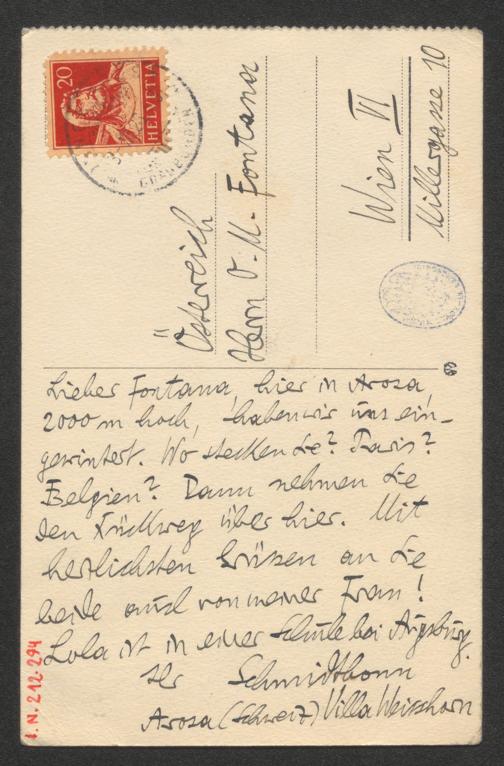 20
HELVETIA
Österreich
Herrn O. M. Fontana
Wien VI
Millergasse 10
Lieber Fontana, hier in Arosa,
2000 m hoch, haben wir uns ein-
gewintert. Wo stecken Sie? Paris?
Belgien? Dann nehmen Sie
den Rückweg über hier. Mit
herzlichsten Grüssen an Sie
beide auch von meiner Frau!
Lola ist in einer Schule bei Augsburg.
Ihr Schmidtbonn
Arosa (Schweiz) Villa Weisshorn
I. N. 212.294